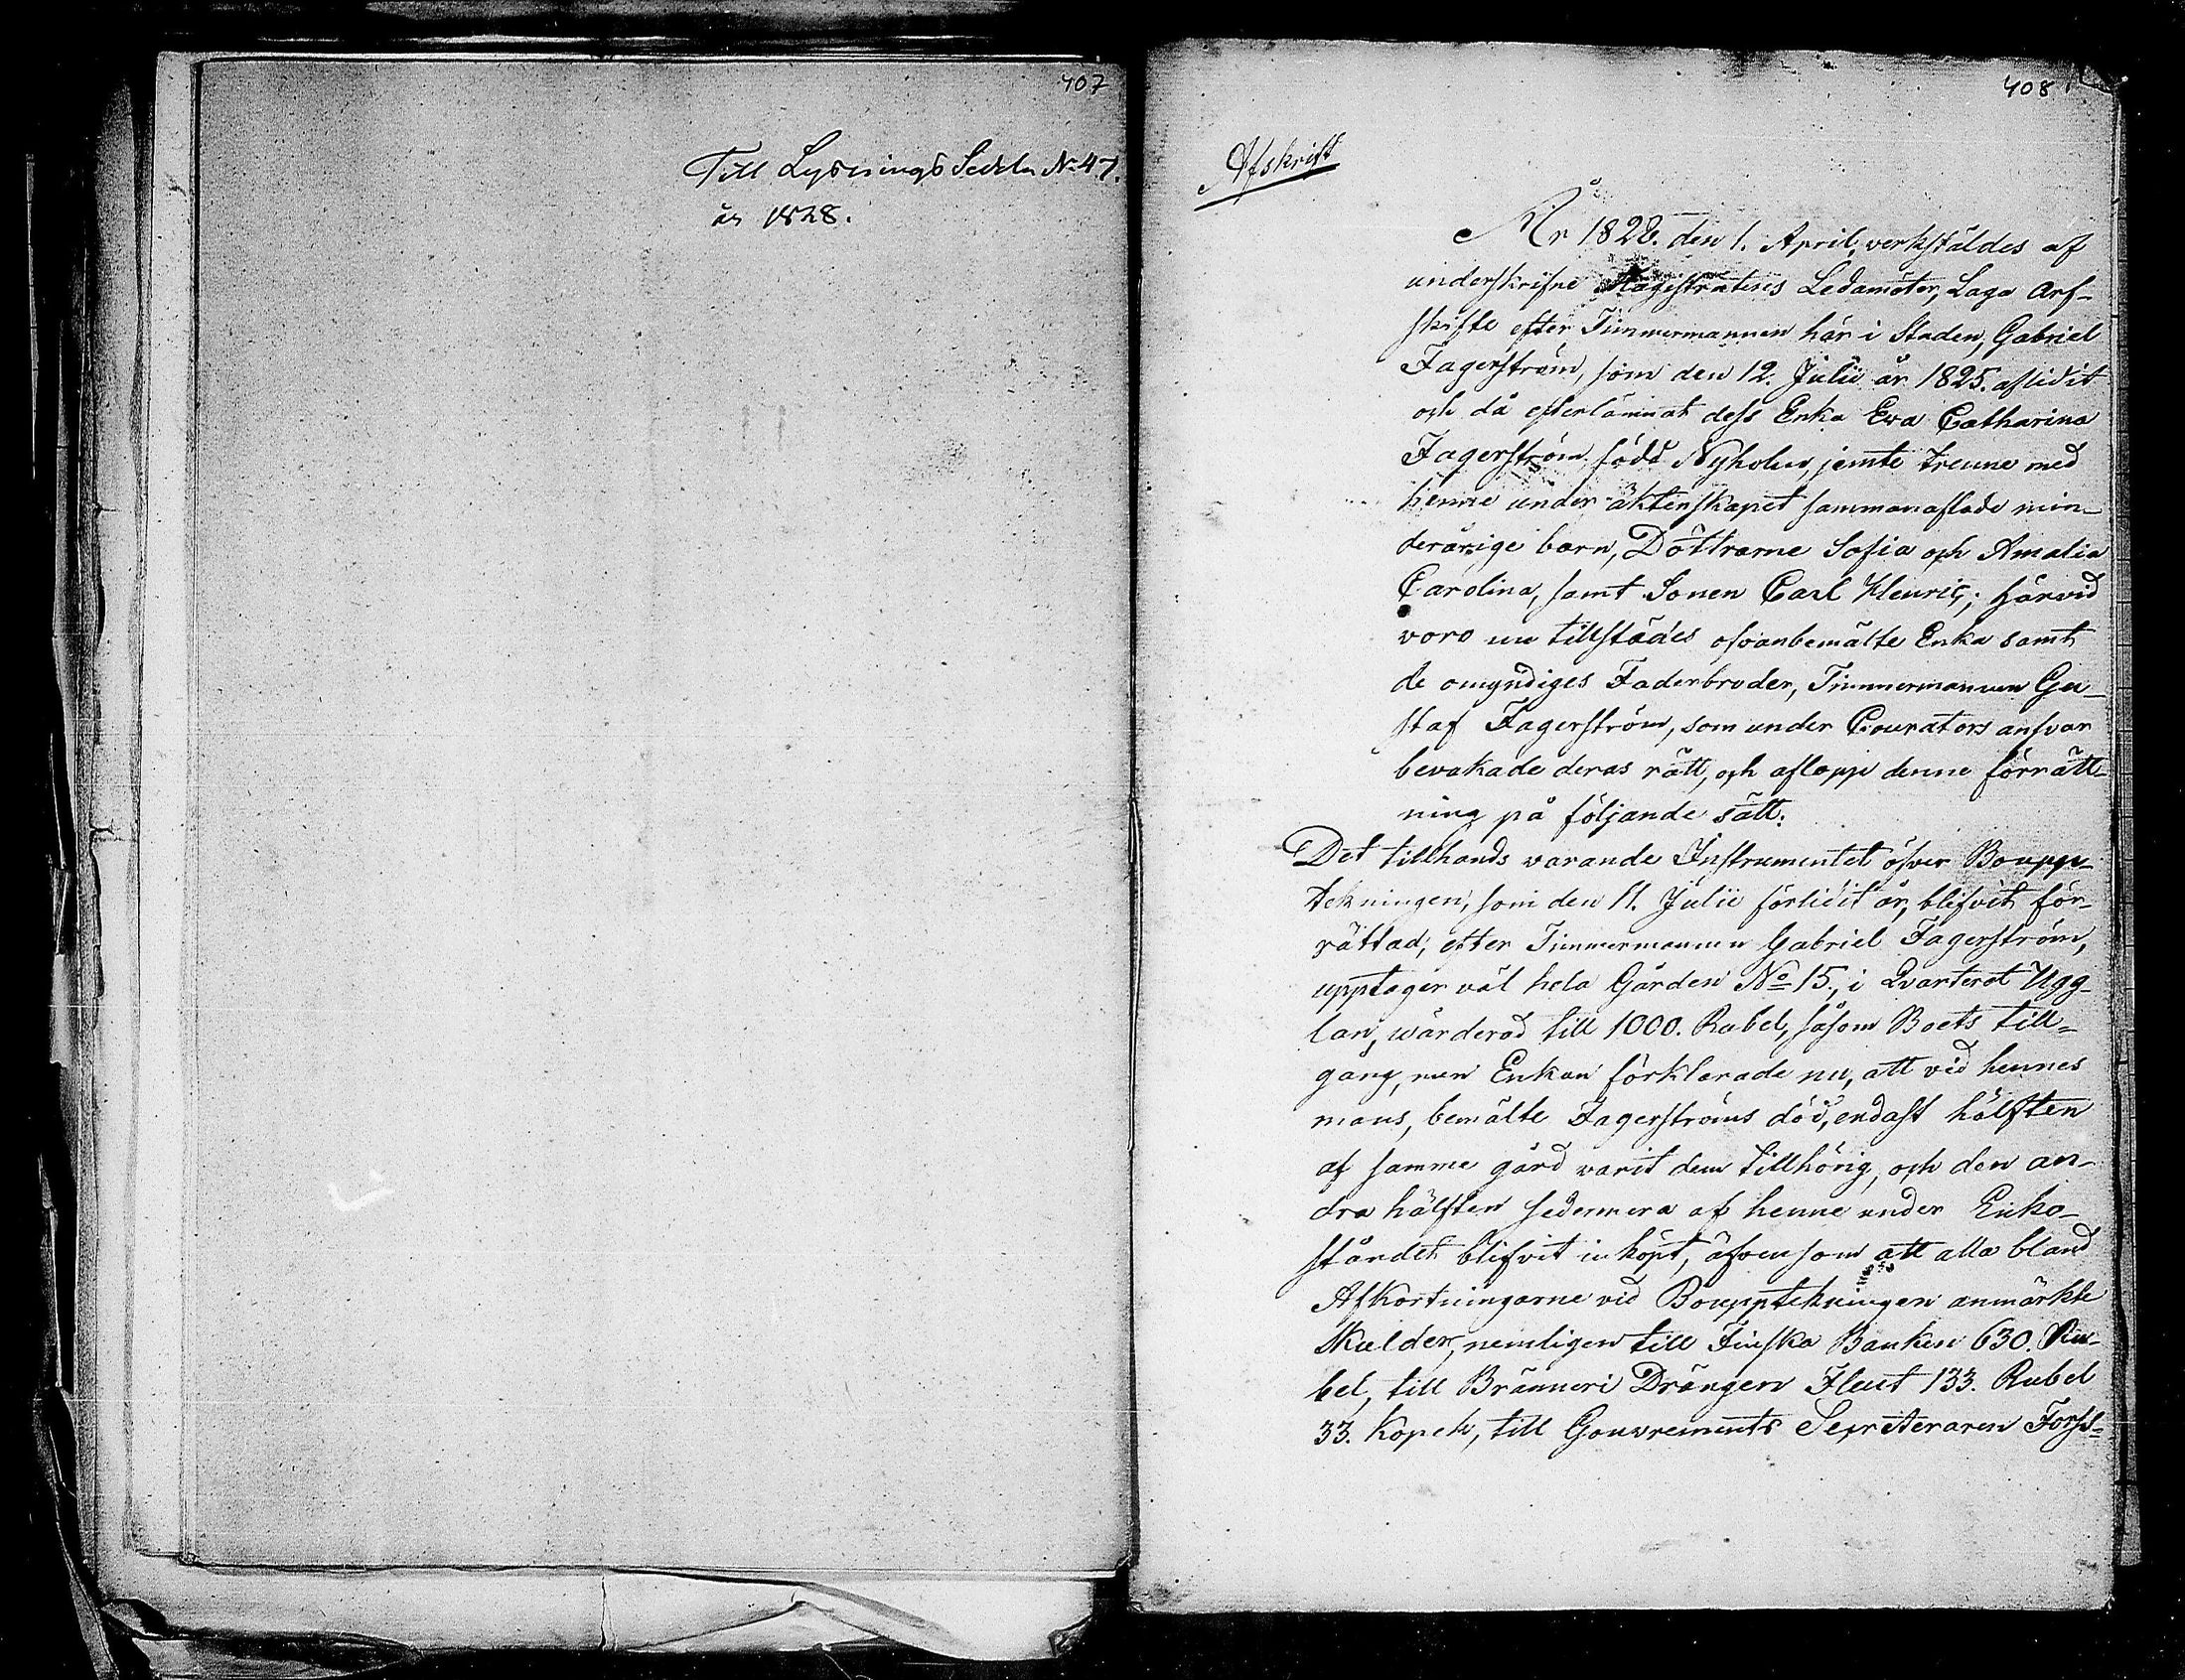 407
Till Lysnings Sedeln No 47.
år 1828.
408
Afskrift
År 1828. den 1. April, verkställdes af
underskrifne Magistratens Ledamöter, Laga Arf-
skifte efter Timmermannen här i Staden, Gabriel
Fagerström, som den 12. Julii år 1825. aflidit
och då efterlämnat dess Enka Eva Catharina
Fagerström född Nyholm, jemte trenne med
henne under äktenskapet sammanaflade min-
derårige barn, Döttrarne Sofia och Amalia
Carolina, samt Sonen Carl Henric; härvid
voro nu tillstädes ofvanbemälte Enka samt
de omyndiges Faderbroder, Timmermannen Gu-
staf Fagerström, som under Courators ansvar
bevakade deras rätt, och aflopp denne förrätt-
ning på följande sätt:
Det tillhands varande Instrumentet öfver Bouppe-
tekningen, som den 11. Julii förlidit år, blifvit för-
rättad; efter Timmermannen Gabriel Fagerström,
upptager väl hela Gården No 15., i Qvarteret Ugg-
lan, wärderad till 1000. Rubel, såsom Boets till-
gång, men Enkan förklarade nu, att vid hennes
mans, bemälte Fagerströms död, endast hälften
af samme gård varit dem tillhörig, och den an-
dra hälften sedermera af henne under Enko-
ståndet blifvit inköpt, äfvensom att alla bland
Afkortningarne vid Bouppteckningen anmärkte
Skulder, nemligen till Finska Banken 630. Ru-
bel, till Bränneri Drängen Fleut 133. Rubel
33. Kopek, till Gouvrements Secreteraren Forss-